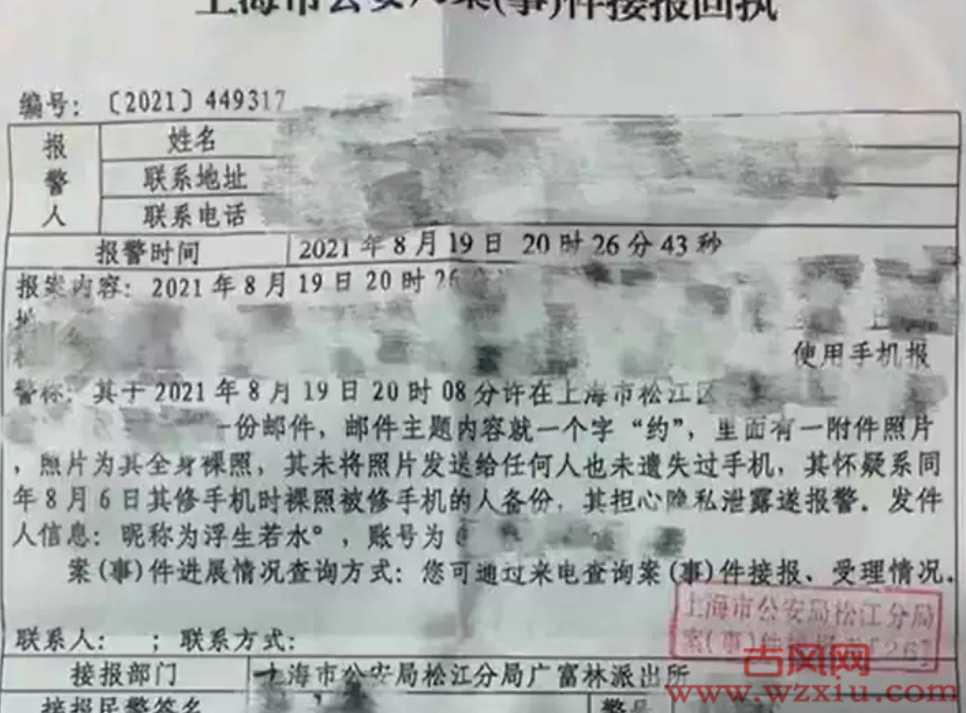 上海市公安 案(事)件接报回执
编号:〔2021〕449317
报警人
姓名
联系地址
联系电话
报警时间 2021年8月19日 20时26分43秒
报案内容: 2021年8月19日20时26
使用手机报
警称: 其于2021年8月19日20时08分许在上海市松江区
一份邮件, 邮件主题内容就一个字“约”, 里面有一附件照片
, 照片为其全身裸照, 其未将照片发送给任何人也未遗失过手机, 其怀疑系同
年8月6日其修手机时裸照被修手机的人备份, 其担心隐私泄露遂报警。发件
人信息: 昵称为浮生若水°, 账号为
案(事)件进展情况查询方式: 您可通过来电查询案(事)件接报、受理情况。
上海市公安局松江分局
案(事)件接报 [26]
联系人: ; 联系方式:
接报部门 上海市公安局松江分局广富林派出所
接报民警签名 警号
古风网
www.wzxiu.com